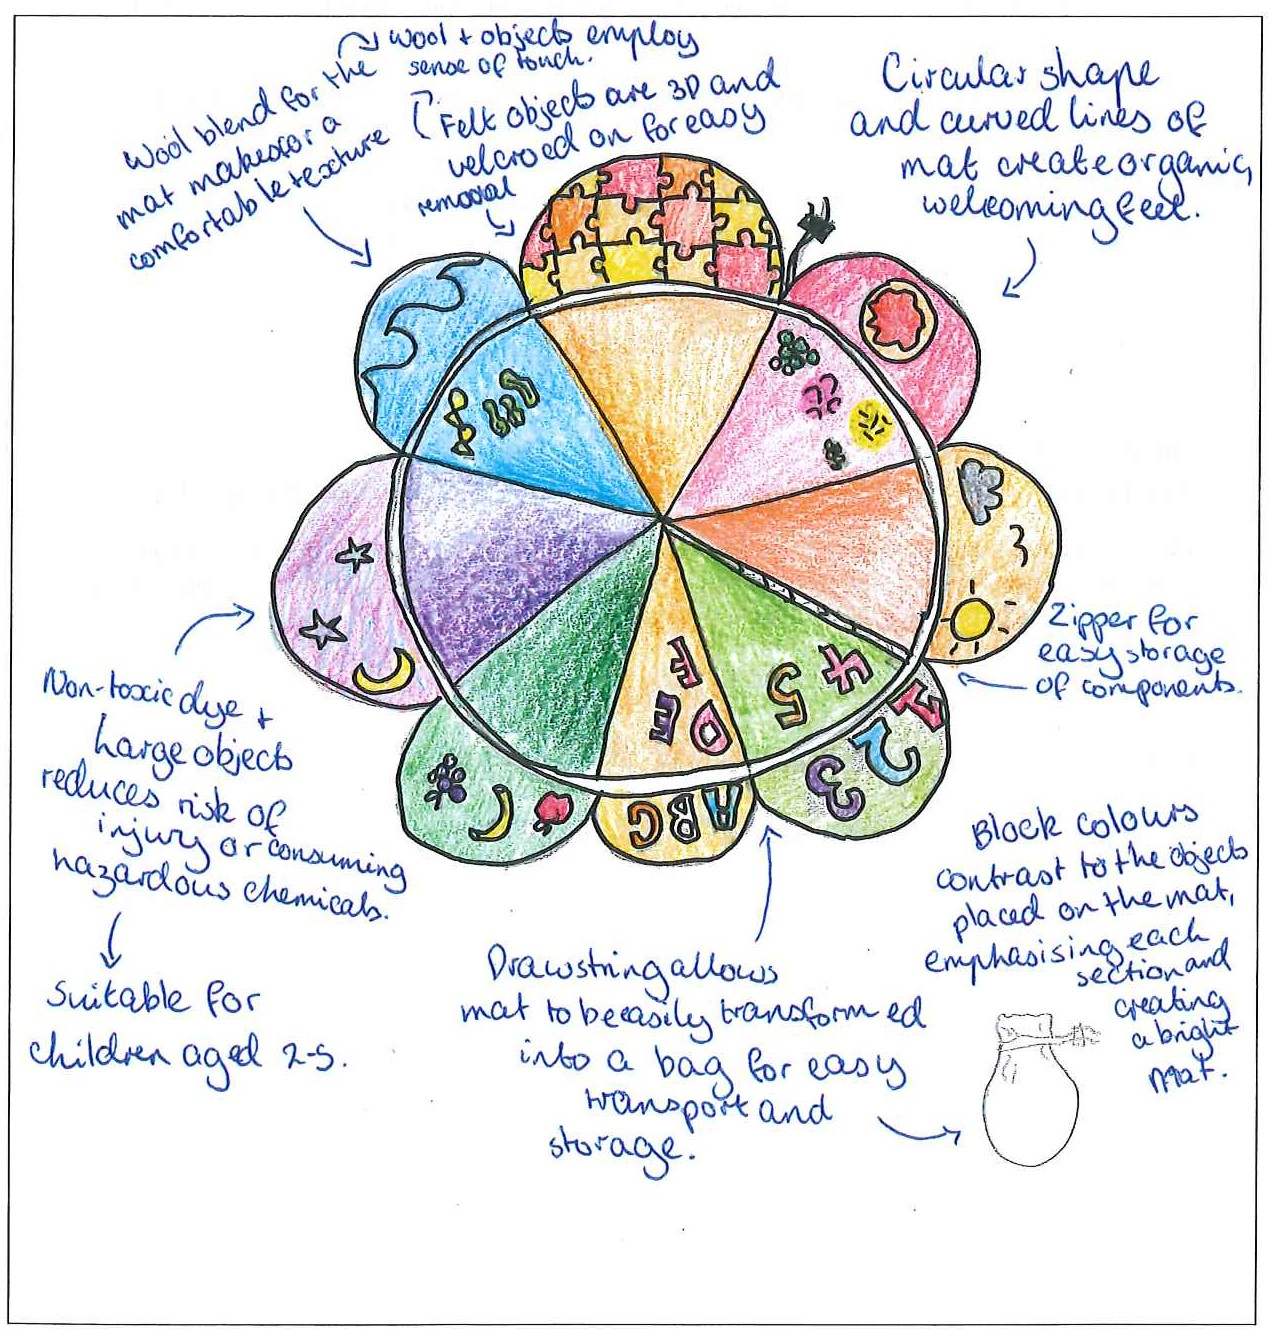 wool + objects employ
sense of touch.
Wool blend for the
mat makes for a
comfortable texture
Felt objects are 3D and
velcroed on for easy
removal
Circular shape
and curved lines of
mat create organic,
welcoming feel.
Zipper for
easy storage
of components.
Non-toxic dye +
large objects
reduces risk of
injury or consuming
hazardous chemicals.
Suitable for
children aged 2-5.
F
E D
5 4
1
2
3
C B A
Drawstring allows
mat to be easily transformed
into a bag for easy
transport and
storage.
Block colours
contrast to the objects
placed on the mat,
emphasising each
section and
creating
a bright
mat.